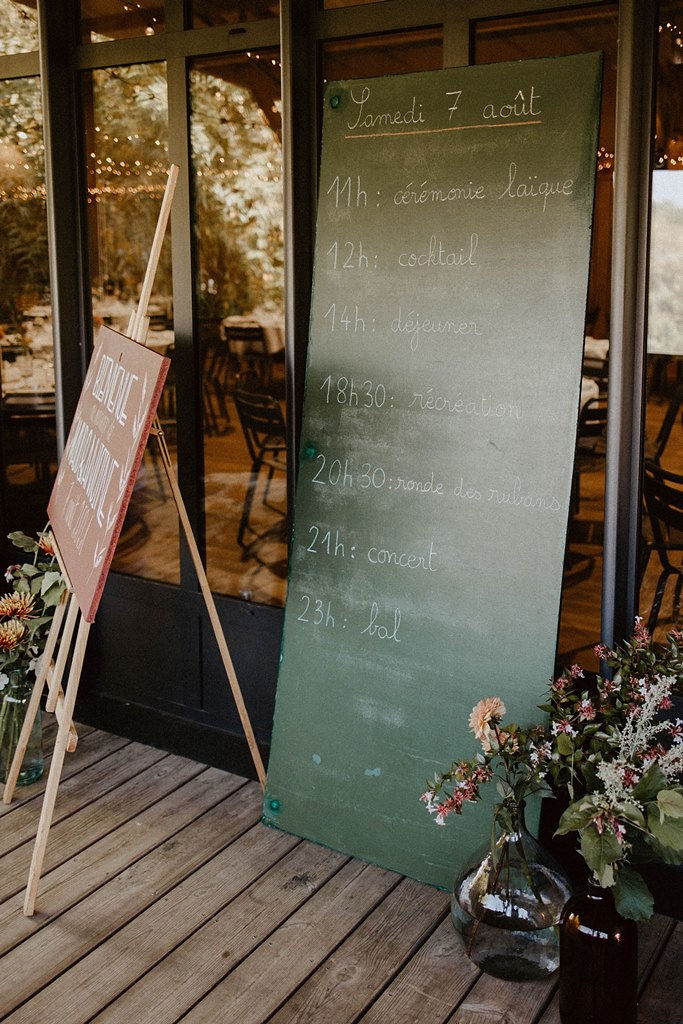 Samedi 7 août
11h: cérémonie laïque
12h: cocktail
14h: déjeuner
18h30: récréation
20h30: ronde des rubans
21h: concert
23h: bal